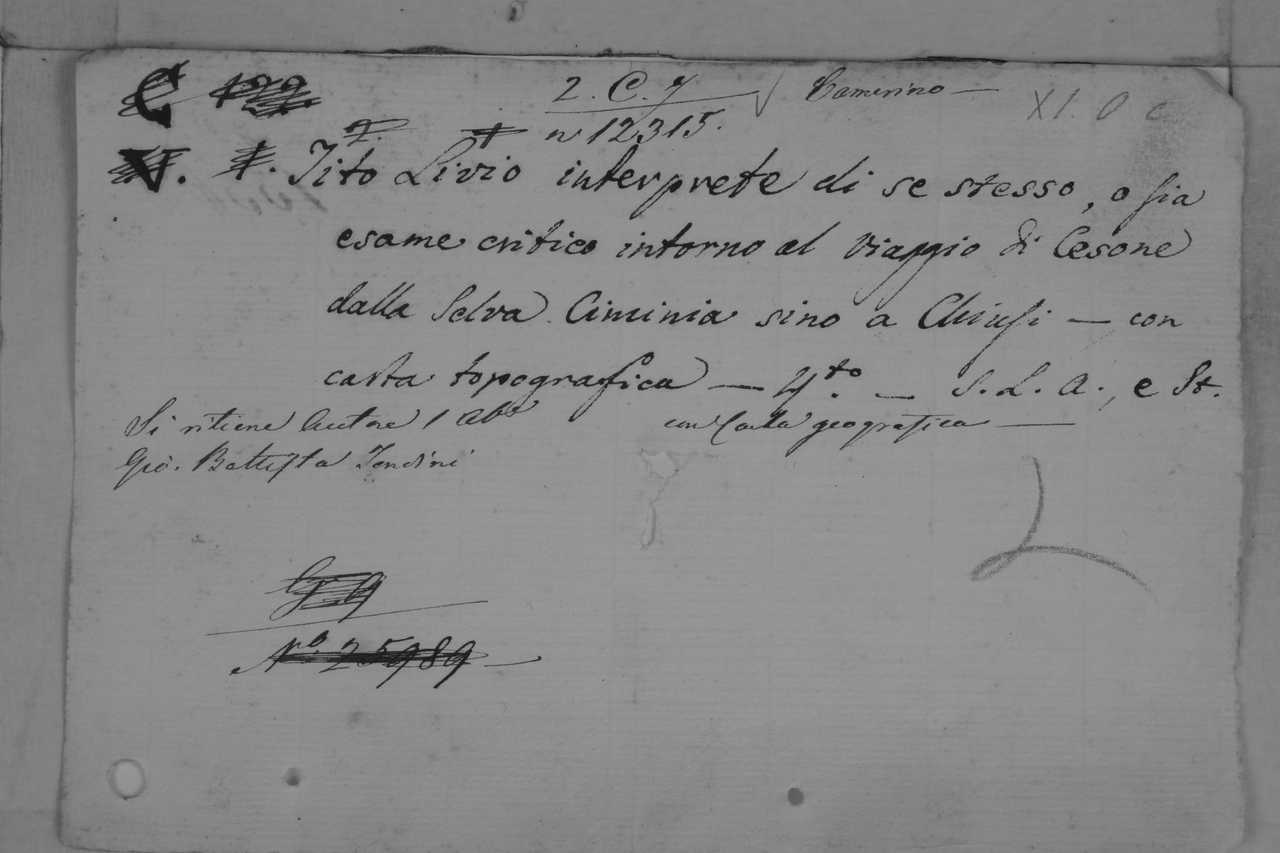 2. C. 7 Camerino —
XI. O c
n 12315.
V. Tito Livio interprete di se stesso, o sia
esame critico intorno al viaggio di Cesone
dalla Selva Ciminia sino a Chiusi — con
carta topografica — 4.to — S. L. A., e St.
Si ritiene Autore l'Abe con Carta geografica —
Gio. Battista Tondini
G. 9
No. 25989 —